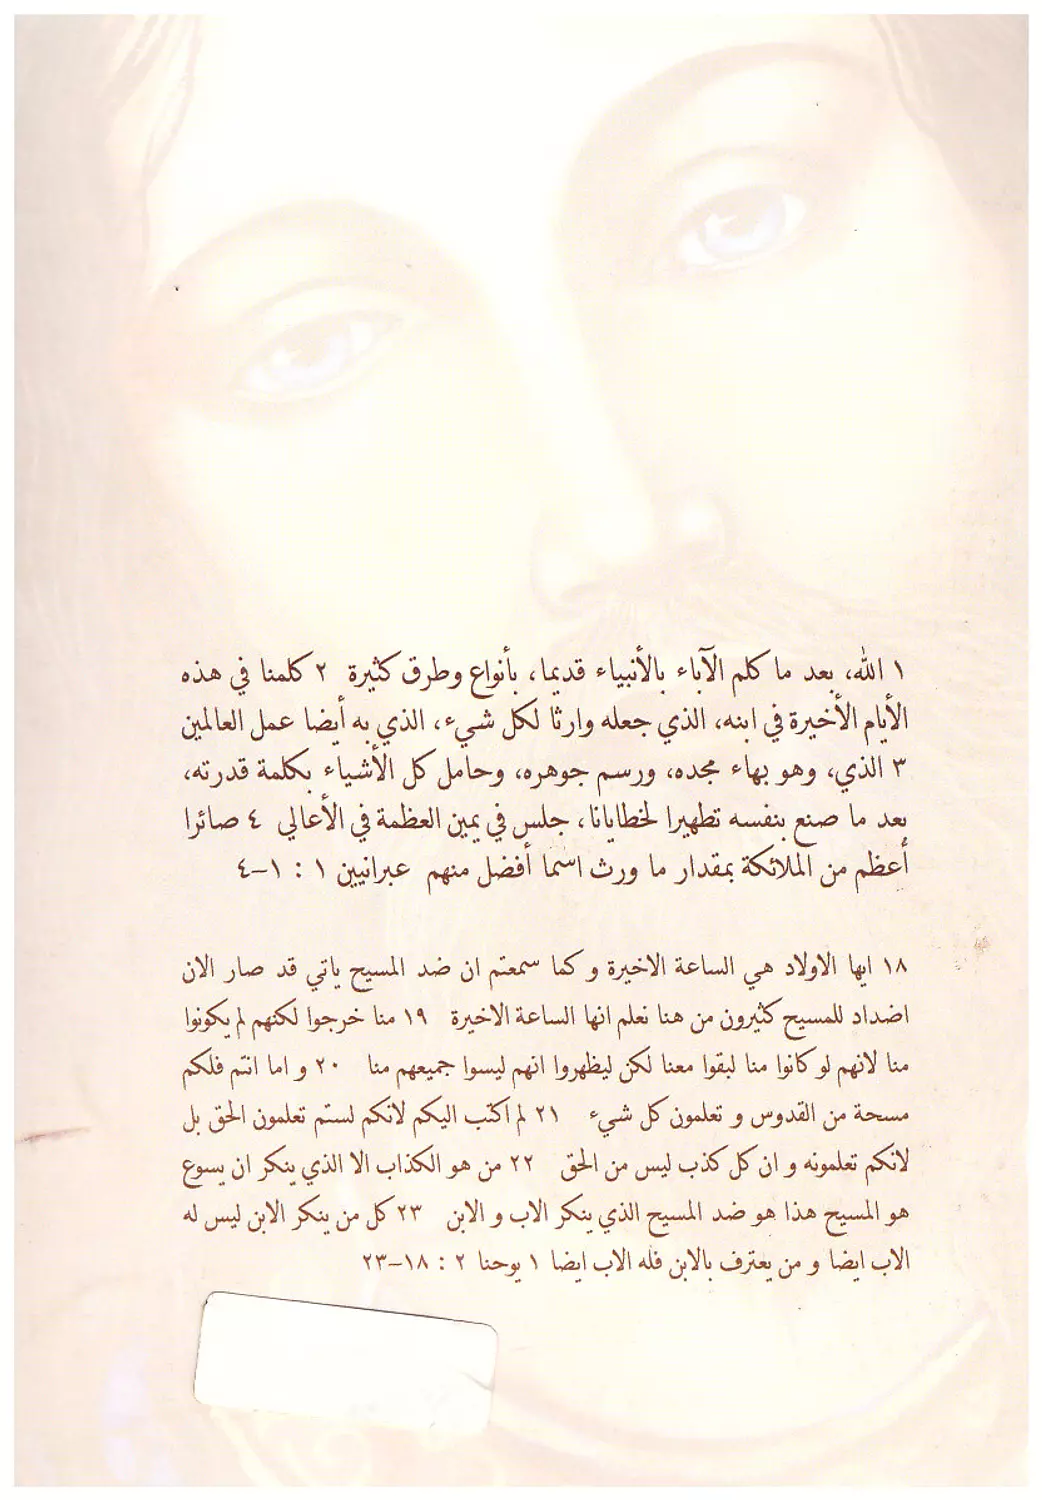 ١ الله، بعد ما كلم الآباء بالأنبياء قديما، بأنواع وطرق كثيرة ٢ كلمنا في هذه
الأيام الأخيرة في ابنه، الذي جعله وارثا لكل شيء، الذي به أيضا عمل العالمين
٣ الذي، وهو بهاء مجده، ورسم جوهره، وحامل كل الأشياء بكلمة قدرته،
بعد ما صنع بنفسه تطهيرا لخطايانا، جلس في يمين العظمة في الأعالي ٤ صائرا
أعظم من الملائكة بمقدار ما ورث اسما أفضل منهم عبرانيين ١ : ١-٤
١٨ ايها الاولاد هي الساعة الاخيرة و كما سمعتم ان ضد المسيح ياتي قد صار الان
اضداد للمسيح كثيرون من هنا نعلم انها الساعة الاخيرة ١٩ منا خرجوا لكنهم لم يكونوا
منا لانهم لو كانوا منا لبقوا معنا لكن ليظهروا انهم ليسوا جميعهم منا ٢٠ و اما انتم فلكم
مسحة من القدوس و تعلمون كل شيء ٢١ لم اكتب اليكم لانكم لستم تعلمون الحق بل
لانكم تعلمونه و ان كل كذب ليس من الحق ٢٢ من هو الكذاب الا الذي ينكر ان يسوع
هو المسيح هذا هو ضد المسيح الذي ينكر الاب و الابن ٢٣ كل من ينكر الابن ليس له
الاب ايضا و من يعترف بالابن فله الاب ايضا ١ يوحنا ٢ : ١٨-٢٣